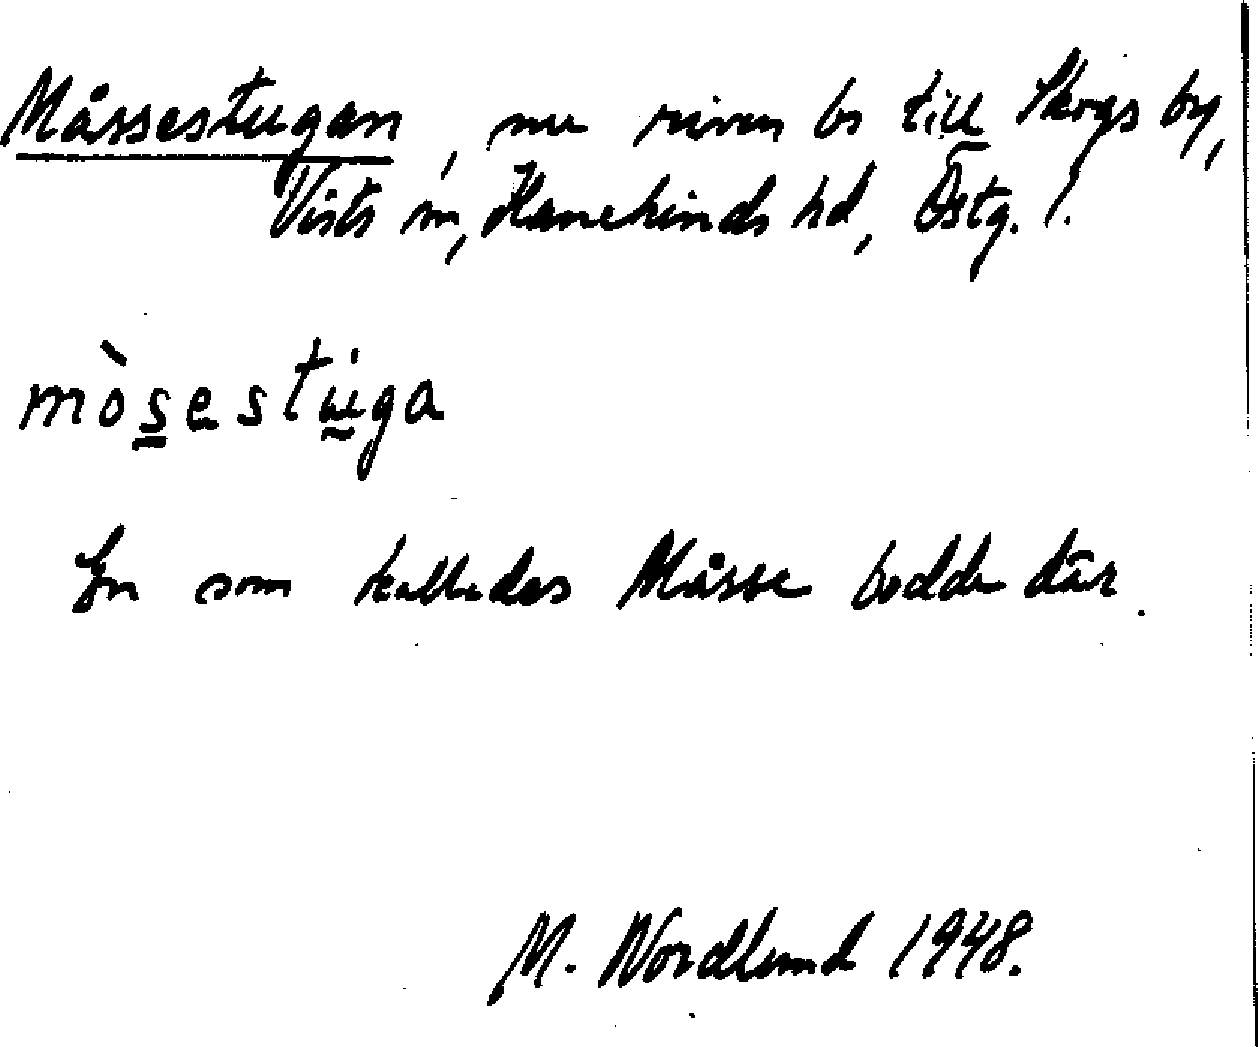 Måssestugan, nu riven bs till Skogs by,
Vists sn, Hanekinds hd, Östg. l.
mòsestu̇ga
En som kallades Måsse bodde där.
M. Nordlund 1948.